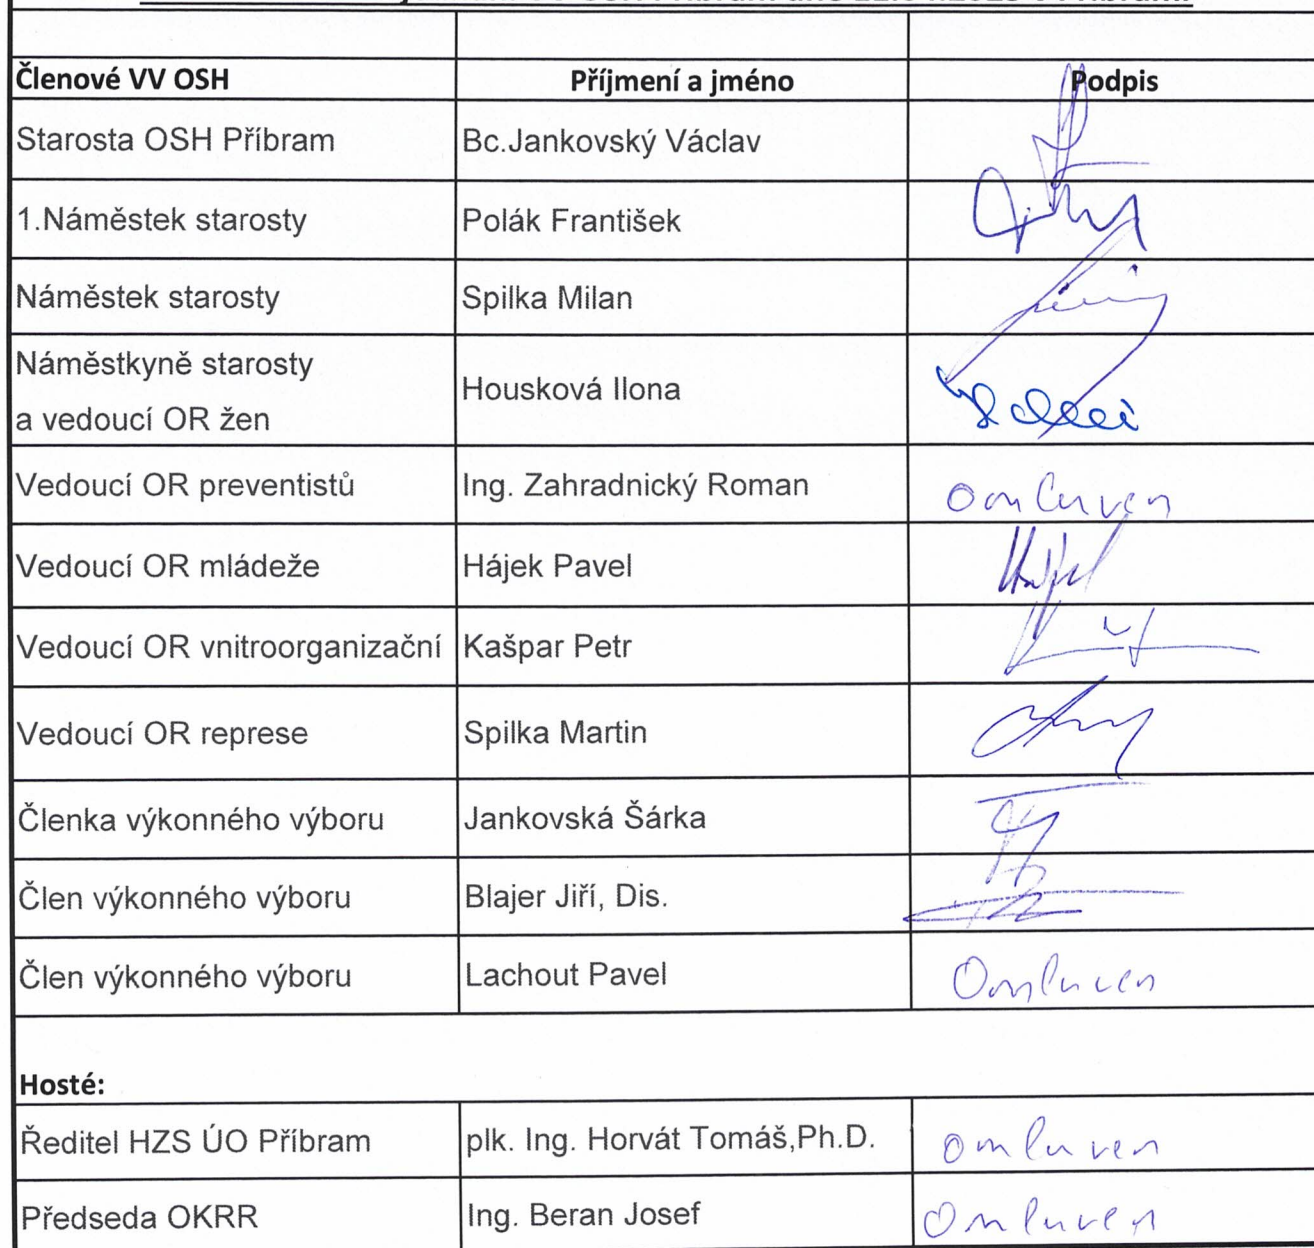 Členové VV OSH Příjmení a jméno Podpis
Starosta OSH Příbram Bc.Jankovský Václav
1.Náměstek starosty Polák František
Náměstek starosty Spilka Milan
Náměstkyně starosty
a vedoucí OR žen Housková Ilona
Vedoucí OR preventistů Ing. Zahradnický Roman omluven
Vedoucí OR mládeže Hájek Pavel
Vedoucí OR vnitroorganizační Kašpar Petr
Vedoucí OR represe Spilka Martin
Členka výkonného výboru Jankovská Šárka
Člen výkonného výboru Blajer Jiří, Dis.
Člen výkonného výboru Lachout Pavel Omluven
Hosté:
Ředitel HZS ÚO Příbram plk. Ing. Horvát Tomáš,Ph.D. omluven
Předseda OKRR Ing. Beran Josef Omluven